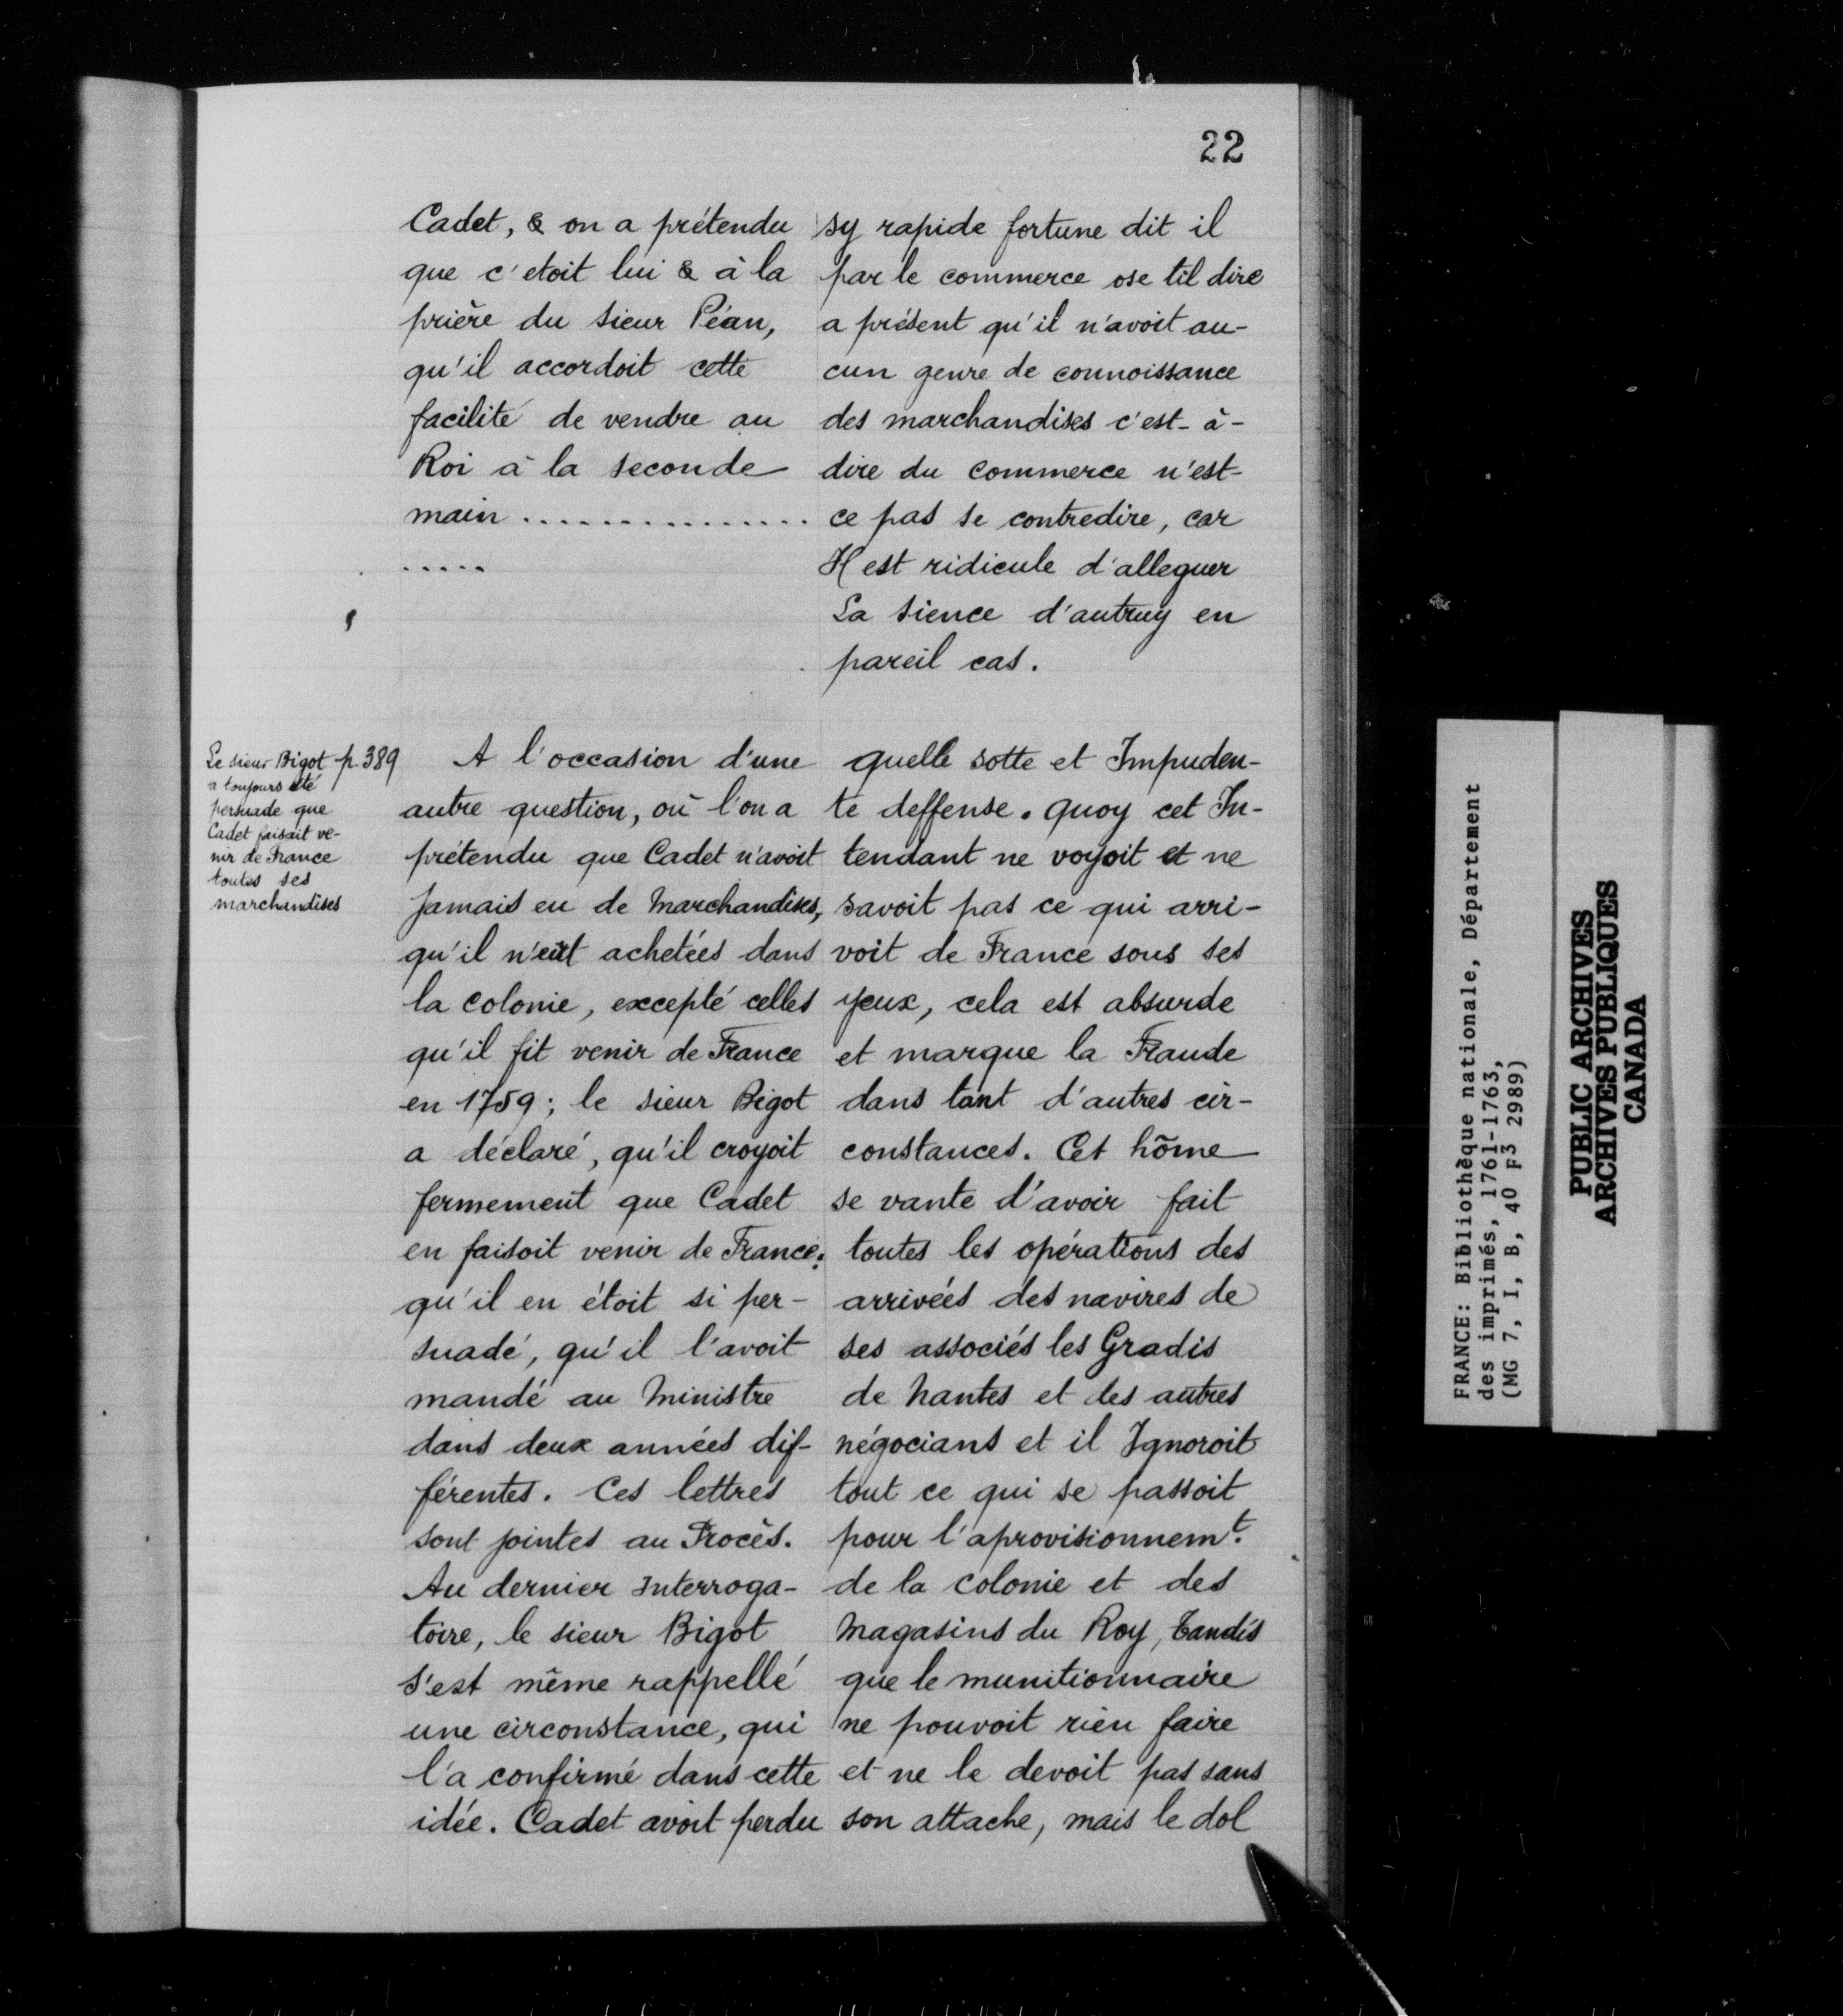 22
Cadet, & on a prétendu
que c'etoit lui & à la
prière du sieur Péan,
qu'il accordoit cette
facilité de vendre au
Roi à la seconde
main ...............
.....
sy rapide fortune dit il
par le commerce ose til dire
a présent qu'il n'avoit au-
cun genre de connoissance
des marchandises c'est-à-
dire du commerce n'est-
ce pas se contredire, car
Il est ridicule d'alleguer
La sience d'autruy en
pareil cas.
Le sieur Bigot p. 389
a toujours été
persuade que
Cadet faisait ve-
nir de France
toutes ses
marchandises
A l'occasion d'une
autre question, où l'on a
prétendu que Cadet n'avoit
Jamais eu de Marchandises,
qu'il n'eût achetées dans
la colonie, excepté celles
qu'il fit venir de France
en 1759; le sieur Bigot
a déclaré, qu'il croyoit
fermement que Cadet
en faisoit venir de France;
qu'il en étoit si per-
suadé, qu'il l'avoit
mandé au Ministre
dans deux années dif-
férentes. Ces lettres
sont jointes au Procès.
Au dernier Interroga-
toire, le sieur Bigot
s'est même rappellé
une circonstance, qui
l'a confirmé dans cette
idée. Cadet avoit perdu
quelle sotte et Impuden-
te deffense. quoy cet In-
tendant ne voyoit et ne
savoit pas ce qui arri-
voit de France sous ses
yeux, cela est absurde
et marque la Fraude
dans tant d'autres cir-
constances. Cet hõme
se vante d'avoir fait
toutes les opérations des
arrivées des navires de
ses associés les Gradis
de Nantes et des autres
négocians et il Ignoroit
tout ce qui se passoit
pour l'aprovisionnemt.
de la colonie et des
Magasins du Roy, tandis
que le munitionnaire
ne pouvoit rien faire
et ne le devoit pas sans
son attache, mais le dol
FRANCE: Bibliothèque nationale, Département
des imprimés, 1761-1763,
(MG 7, I, B, 40 F3 2989)
PUBLIC ARCHIVES
ARCHIVES PUBLIQUES
CANADA